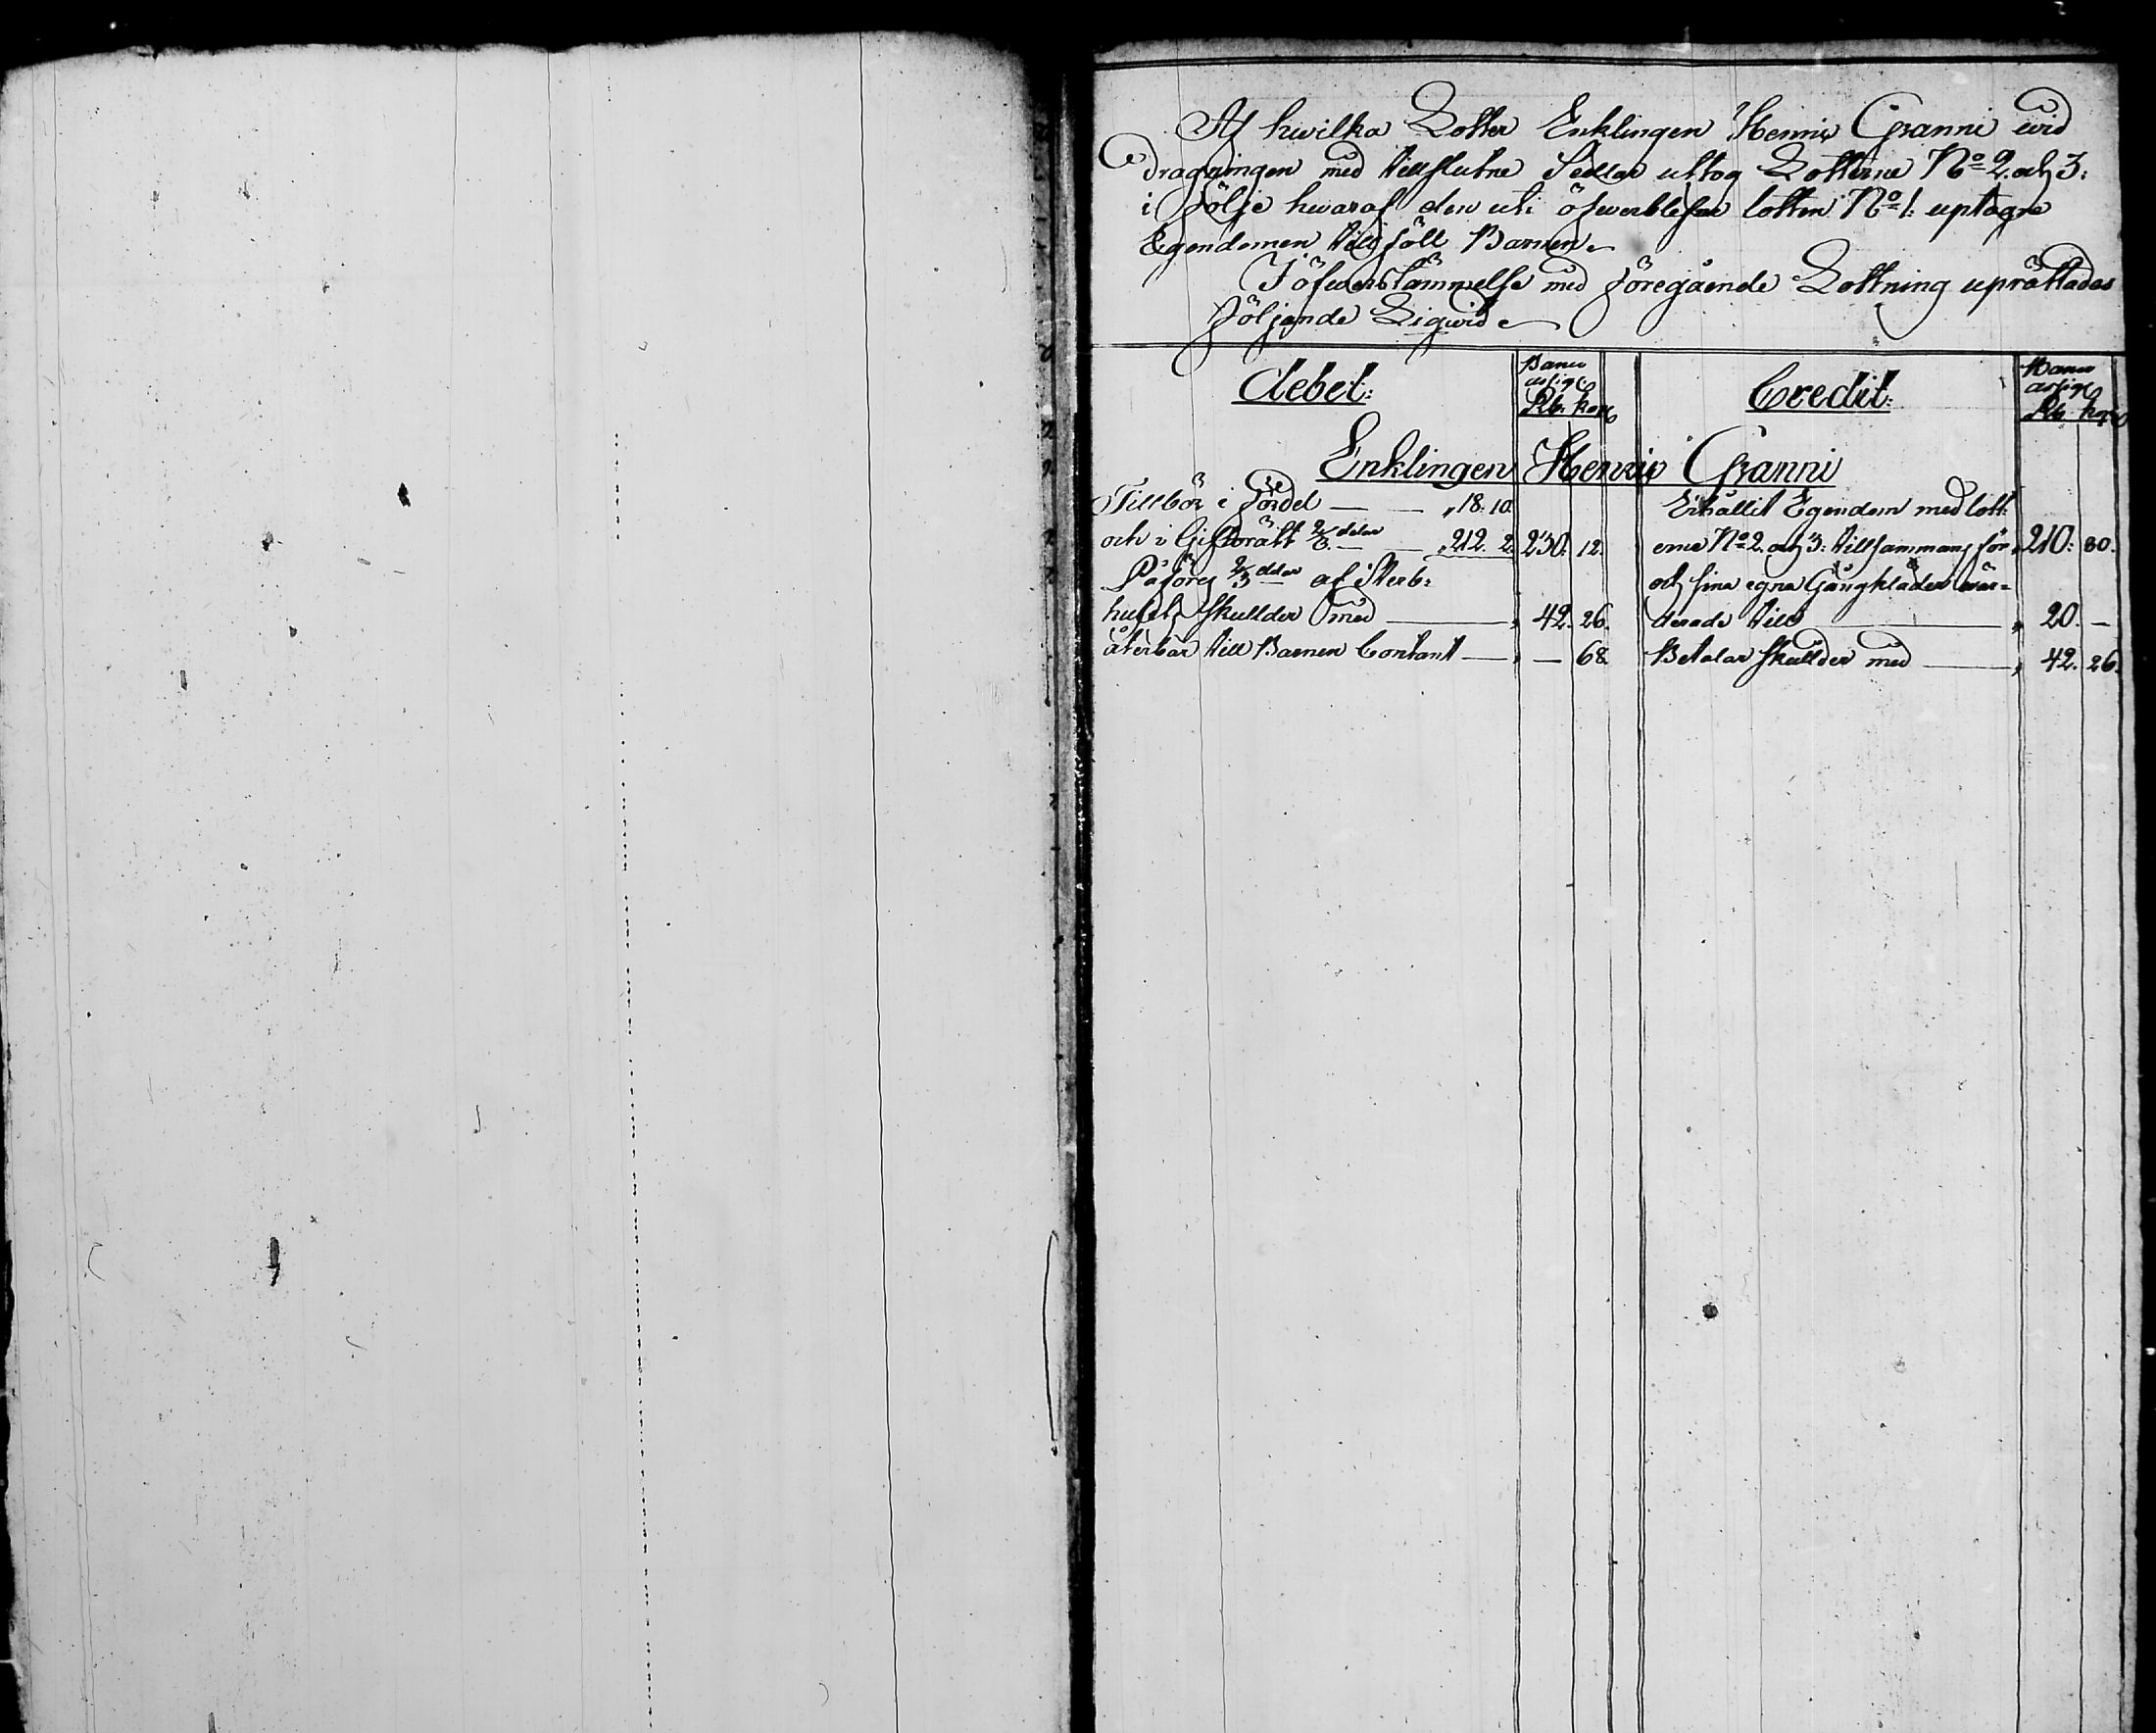 Af hwilka Lotter Enklingen Henric Granni wid
dragningen med tillslutne Sedlar uttog Lotterne No 2. och 3:
i följe hwaraf den uti öfwerblefne lotten No 1: uptagne
Egendomen tillföll Barnen.
I öfwerstämmelse med föregående Lottning uprättades
följande Liqwid
debet: Banco assign: Rb. kop.
Credit: Banco assign: Rb. kop.
Enklingen Henric Granni
Tillbör i fördel — — „ 18. 10.
och i Giftorätt 2/3 delar — „ 212. 2. 230. 12.
Påföres 2/3 delar af Sterb-
husets skullder med — „ 42. 26.
återbär till Barnen Contant — „ — 68
Erhållit Egendom med lott-
erne No 2. och 3: tillsammans för „ 210: 80.
och sina egna Gångkläder wär-
derade till — „ 20. —
Betalar skullder med — „ 42. 26.